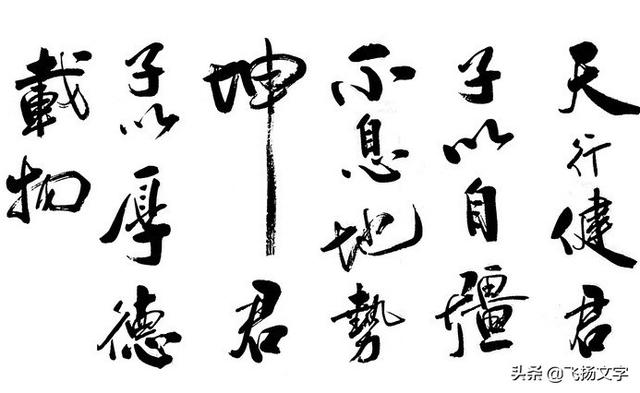 天行健君
子以自疆
不息地勢
坤君
子以厚德
載物
头条 @飞扬文字